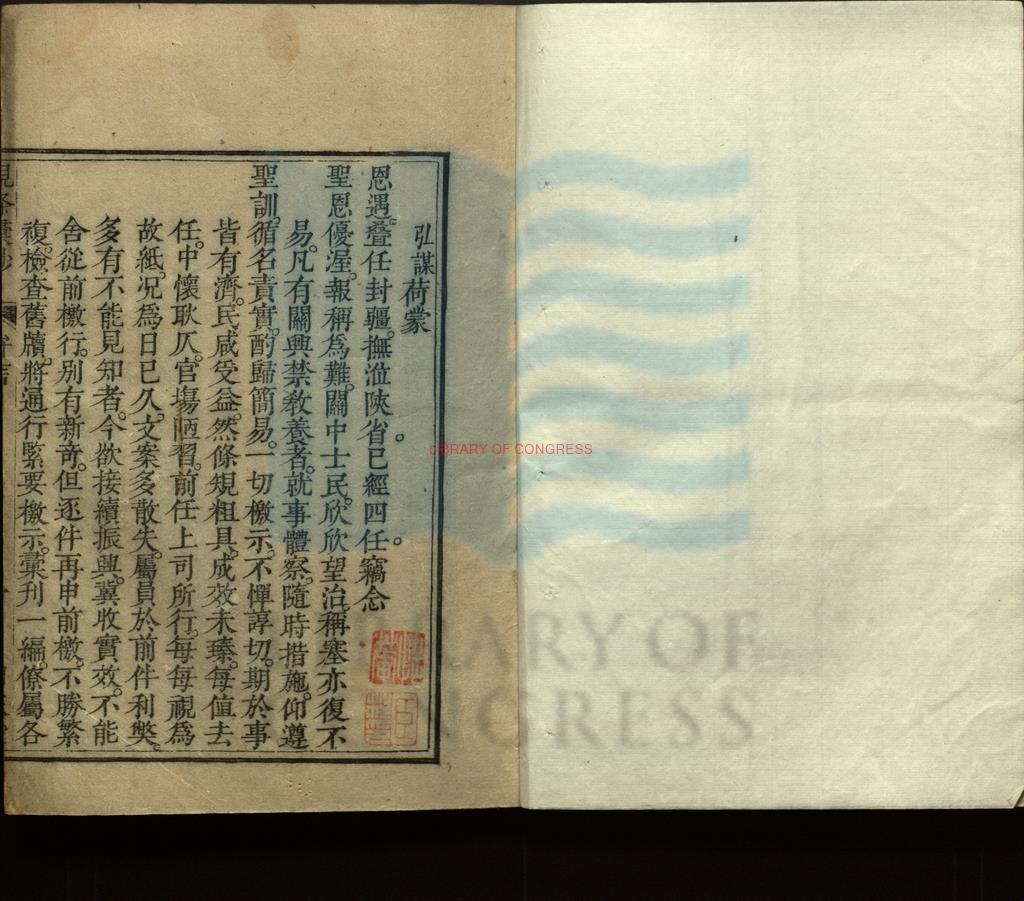 弘謀荷蒙
恩遇。叠任封疆。撫涖陝省。已經四任。竊念
聖恩優渥。報稱爲難。關中士民。欣欣望治。稱塞亦復不
易。凡有關興禁教養者。就事體察。隨時措施。仰遵
聖訓。循名責實。酌歸簡易。一切檄示。不憚諄切。期於事
皆有濟。民咸受益。然條規粗具。成效未臻。每值去
任。中懷耿仄。官塲陋習。前任上司所行。每每視爲
故紙。况爲日已久。文案多散失。屬員於前件利獘。
多有不能見知者。今欲接續振興。冀收實效。不能
舍從前檄行。别有新竒。但逐件再申前檄。不勝繁
複。檢查舊牘。將通行緊要檄示。彙刋一編。僚屬各
弁言
LIBRARY OF CONGRESS
LIBRARY OF
CONGRESS